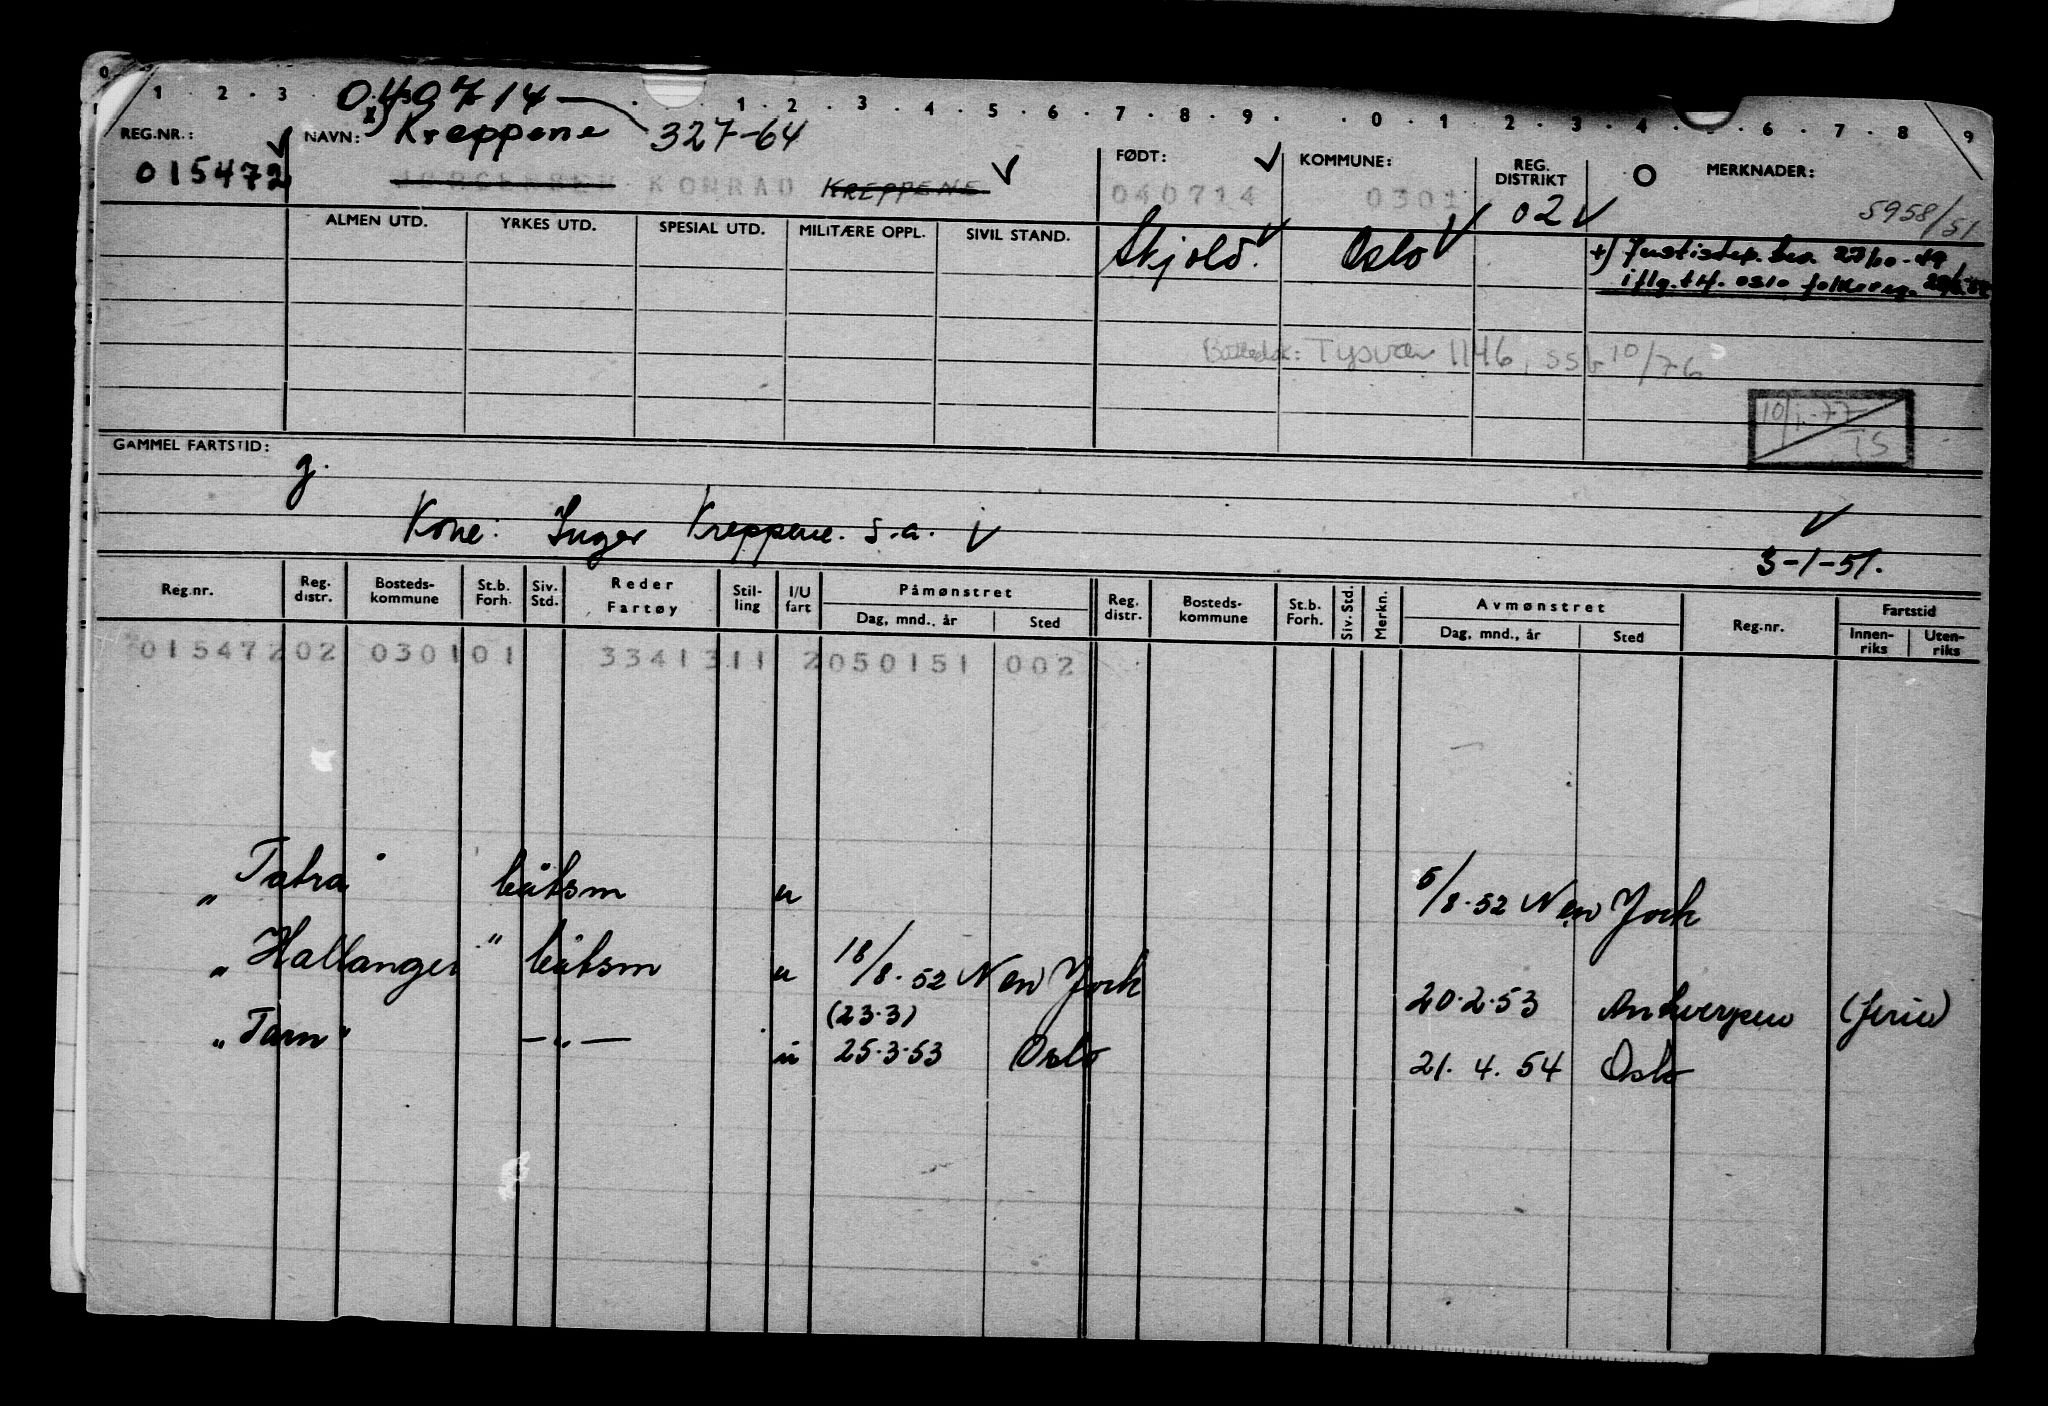 0 1 . 2 . 3 . 1 . 2 . 3 . 4 . 5 . 6 . 7 . 8 . 9 . . 0 . 1 . 2 . 3 . 4 . 5 . 6 . 7 . 8 . 9
040714 327-64
REG.NR.: NAVN: x) Kreppene FØDT: KOMMUNE: REG. DISTRIKT O MERKNADER:
015472 KONRAD KREPPENE 040714 0301 02 5958/51
ALMEN UTD. YRKES UTD. SPESIAL UTD. MILITÆRE OPPL. SIVIL STAND. Skjold. Oslo
+) Justisdep. bev. 27/10-49
iflg. t.H. oslo folkereg.
Bostedsk: Tysvær 1146, ssb 10/76
10/1-77
TS
GAMMEL FARTSTID: g.
Kone: Inger Kreppene. s.a.
3-1-51.
Reg.nr. Reg. distr. Bosteds-kommune St.b. Forh. Siv. Std. Reder Fartøy Stil-ling I/U fart Påmønstret Reg. distr. Bosteds-kommune St.b. Forh. Siv. Std. Merkn. Avmønstret Reg.nr. Fartstid
Dag, mnd., år Sted Dag, mnd., år Sted Innen-riks Uten-riks
015472 02 0301 01 33413 11 2 050151 002
"Tatra" båtsm u 5/8-52 New York
"Hallanger" båtsm u 18/8-52 New York 20.2.53 Antwerpen (ferie)
(23.3)
"Tarn" -"- u 25.3.53 Oslo 21.4.54 Oslo